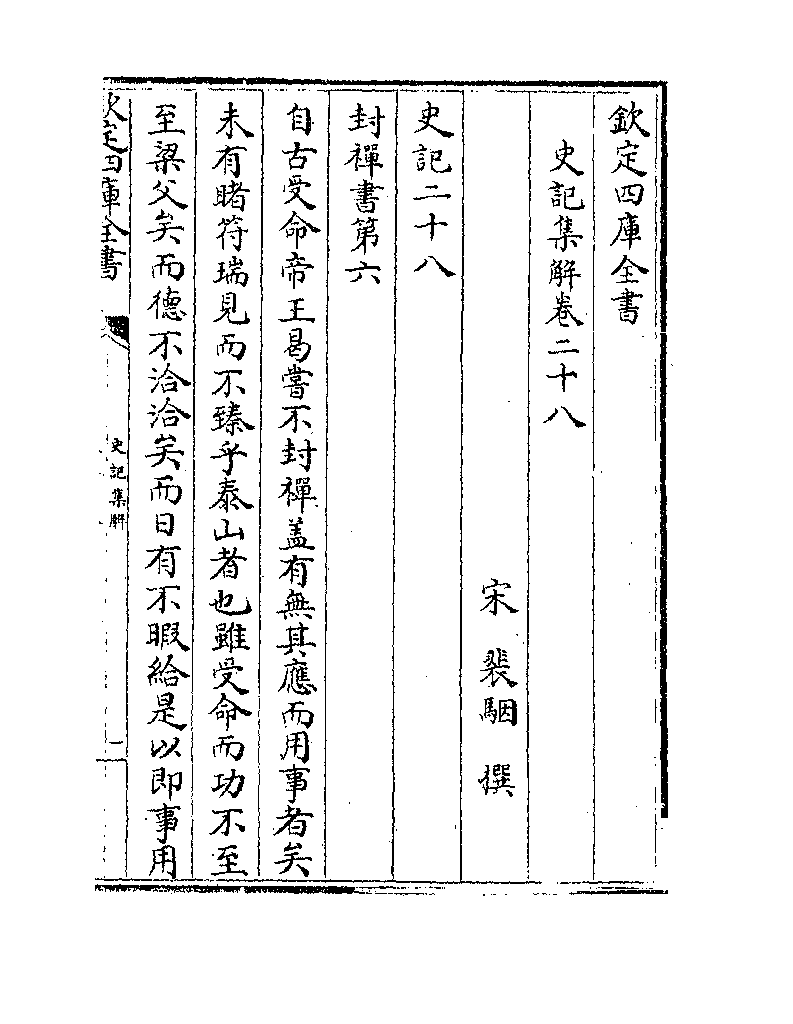 欽定四庫全書
史記集解卷二十八
宋 裴駰 撰
史記二十八
封禪書第六
自古受命帝王曷嘗不封禪盖有無其應而用事者矣
未有睹符瑞見而不臻乎泰山者也雖受命而功不至
至梁父矣而德不洽洽矣而日有不暇給是以即事用
欽定四庫全書
史記集解